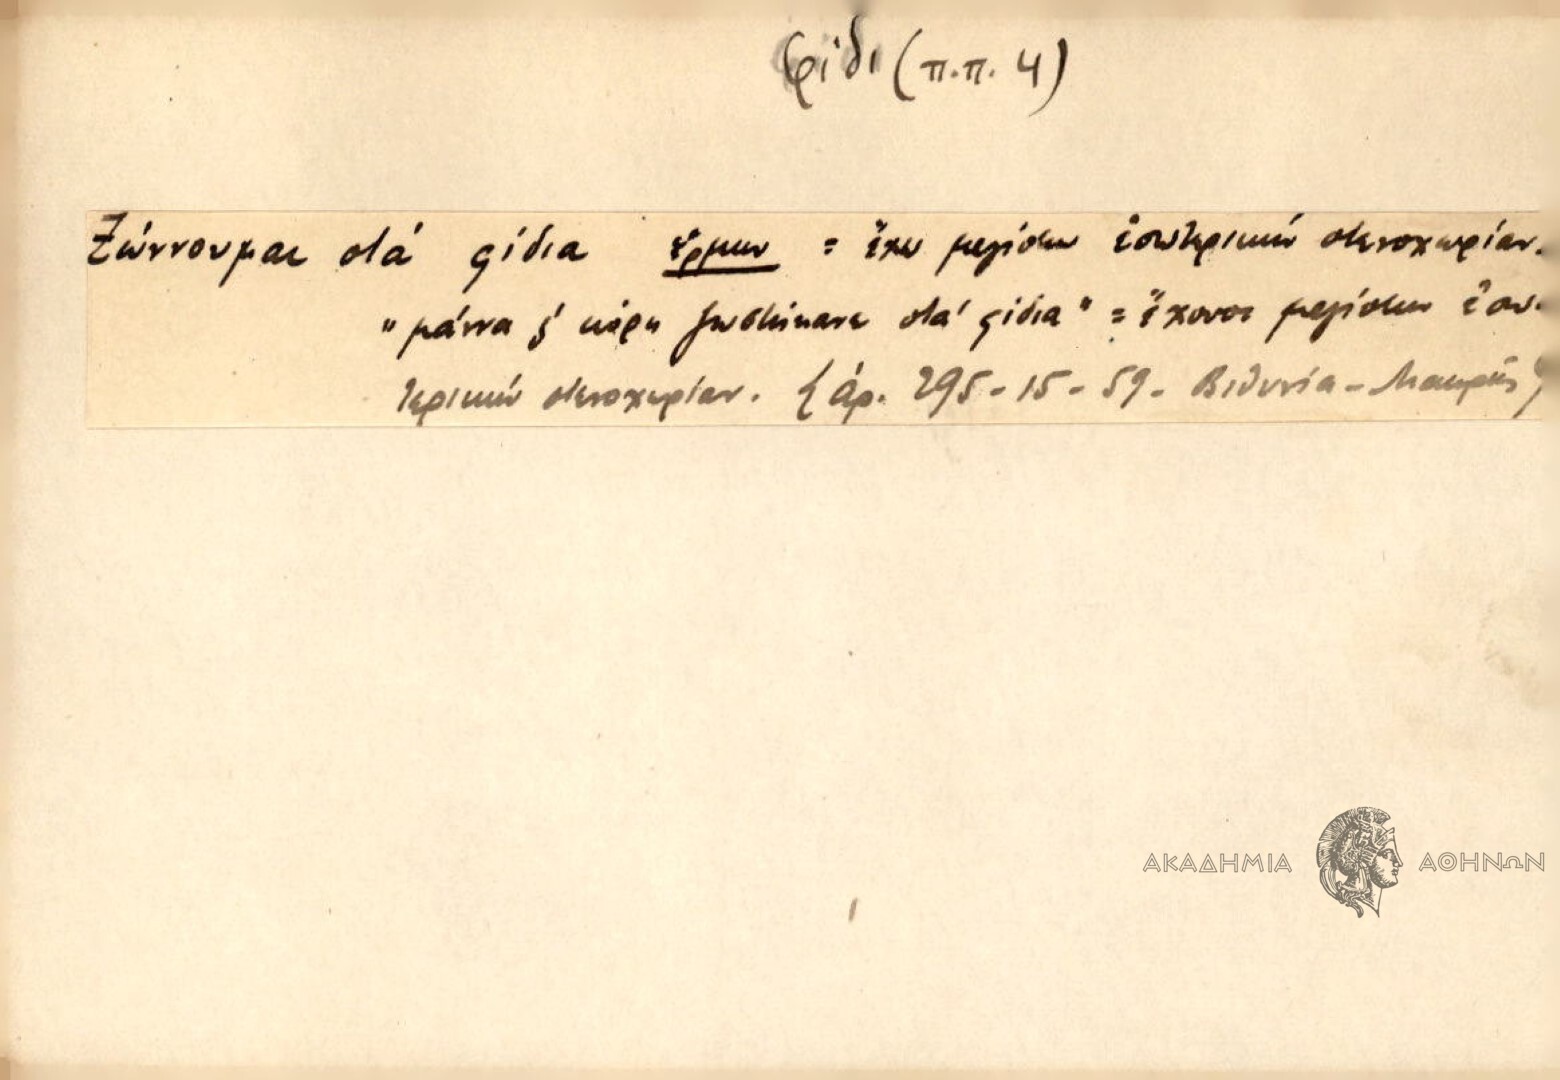 φίδι (π.π. 4)
Ζώννουμαι στά φίδια = ἔχω μεγίστην ἐσωτερικήν στενοχωρίαν.
"μάννα κόρη ζωστήκανε στά φίδια" = ἔχουσι μεγίστην ἐσω-
τερικήν στενοχωρίαν. (άρ. 295-15-59. Βιθυνία - Μακρῆς)
ΑΚΑΔΗΜΙΑ ΑΘΗΝΩΝ